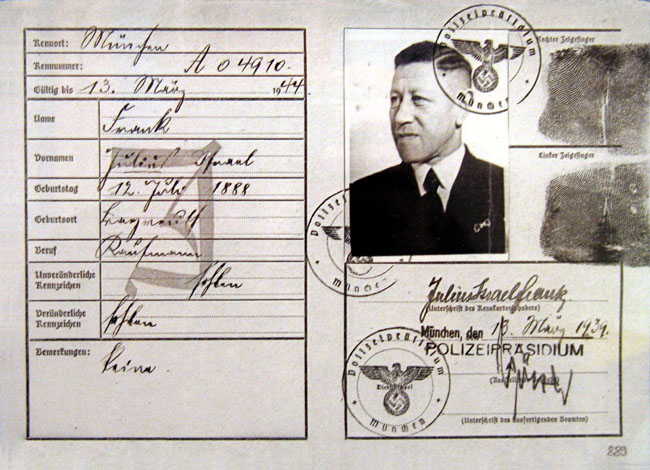 Kennort: München
Kennummer: A 04910
Gültig bis 13. März 1944
Name Frank
Vornamen Julius Israel
Geburtstag 12. Juli 1888
Geburtsort Bayreuth
Beruf Kaufmann
Unveränderliche Kennzeichen fehlen
Veränderliche Kennzeichen fehlen
Bemerkungen: keine.
Polizeipräsidium
München
Rechter Zeigefinger
Linker Zeigefinger
Polizeipräsidium
München
Julius Israel Frank
(Unterschrift des Kennkarteninhabers)
München, den 13. März 1939.
POLIZEIPRÄSIDIUM
Polizeipräsidium
Dienststempel
München
(Unterschrift des ausfertigenden Beamten)